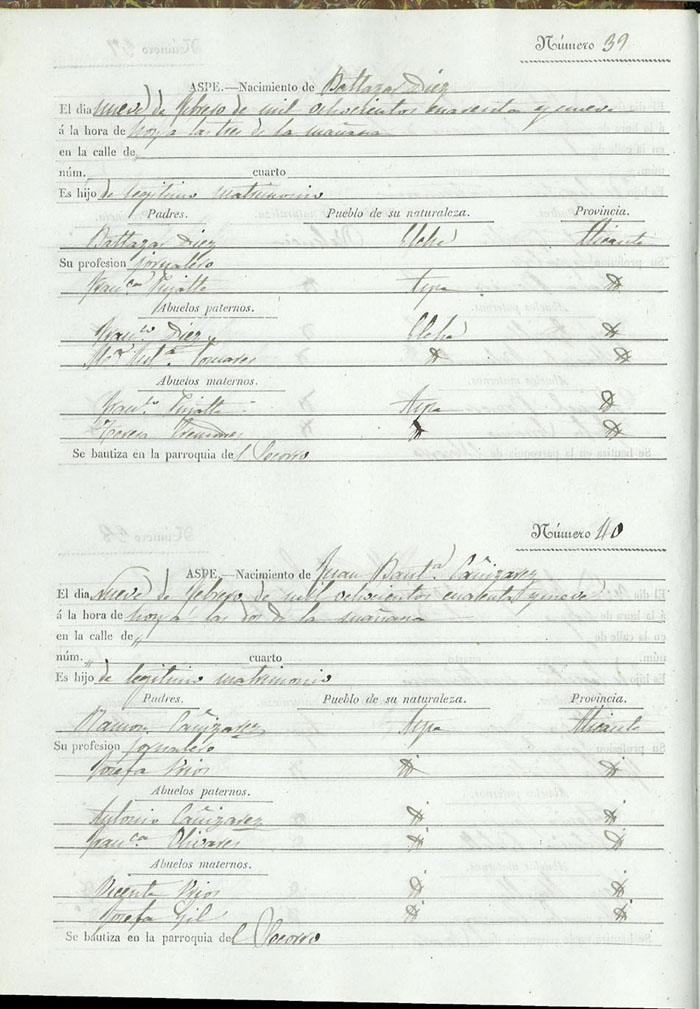 Número 39
ASPE.—Nacimiento de Baltazar Diez
El dia nueve de Febrero de mil ochocientos cuarenta y nueve
á la hora de hoy a las tres de la mañana
en la calle de
núm. cuarto
Es hijo de legitimo matrimonio
Padres. Pueblo de su naturaleza. Provincia.
Baltazar Diez Elche Alicante
Su profesion jornalero
Franca Aspe
Abuelos paternos.
Franco Diez Elche
Ma Anta
Abuelos maternos.
Franco Aspe
Teresa
Se bautiza en la parroquia del Socorro
Número 40
ASPE.—Nacimiento de Juan Bauta Cañizarez
El dia Nueve de Febrero de mil ochocientos cuarenta y nueve
á la hora de hoy a las dos de la mañana
en la calle de „
núm. „ cuarto
Es hijo de legitimo matrimonio
Padres. Pueblo de su naturaleza. Provincia.
Ramon Cañizarez Aspe Alicante
Su profesion jornalero
Josefa
Abuelos paternos.
Antonio Cañizarez
Franca Olivares
Abuelos maternos.
Vicente
Josefa Gil
Se bautiza en la parroquia del Socorro